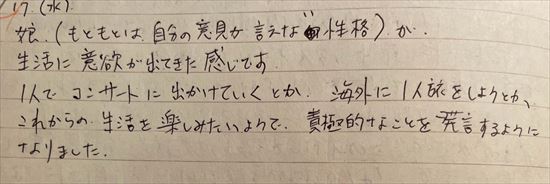 17.(水).
娘.(もともとは自分の意見が言えない性格)が.
生活に意欲が出てきた感じです
1人でコンサートに出かけていくとか. 海外に1人旅をしようとか、
これからの生活を楽しみたいようで、積極的なことを発言するように
なりました.